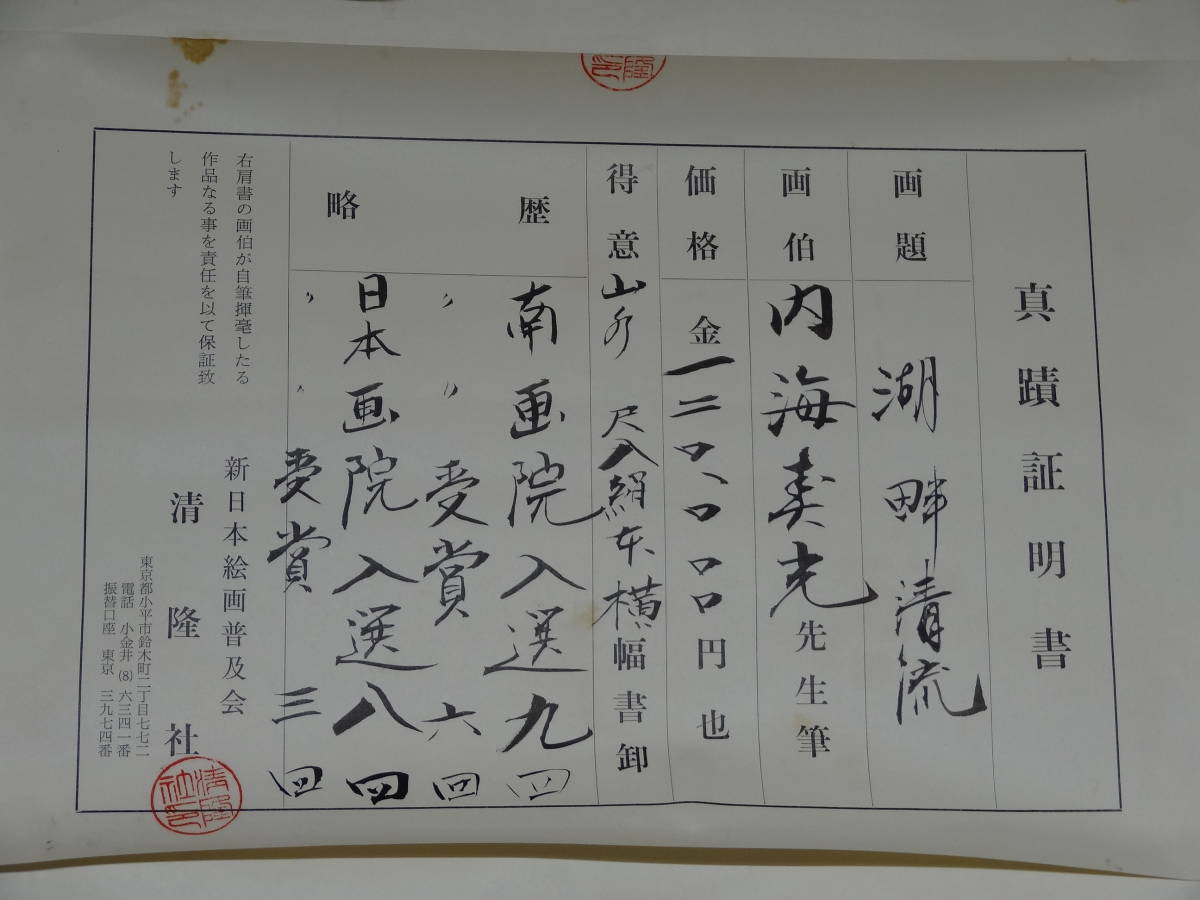 真蹟証明書
画題 湖畔清流
画伯 内海寿光先生筆
価格 金一二〇、〇〇〇円也
得意 山水 尺八絹本横幅書卸
略歴
南画院入選九回
〃〃受賞六回
日本画院入選八回
〃〃受賞三回
右肩書の画伯が自筆揮毫したる
作品なる事を責任を以て保証致
します
新日本絵画普及会
清隆社
東京都小平市鈴木町二丁目七七二
電話 小金井 (8) 六三四一番
振替口座 東京 三九七四番
清隆社印